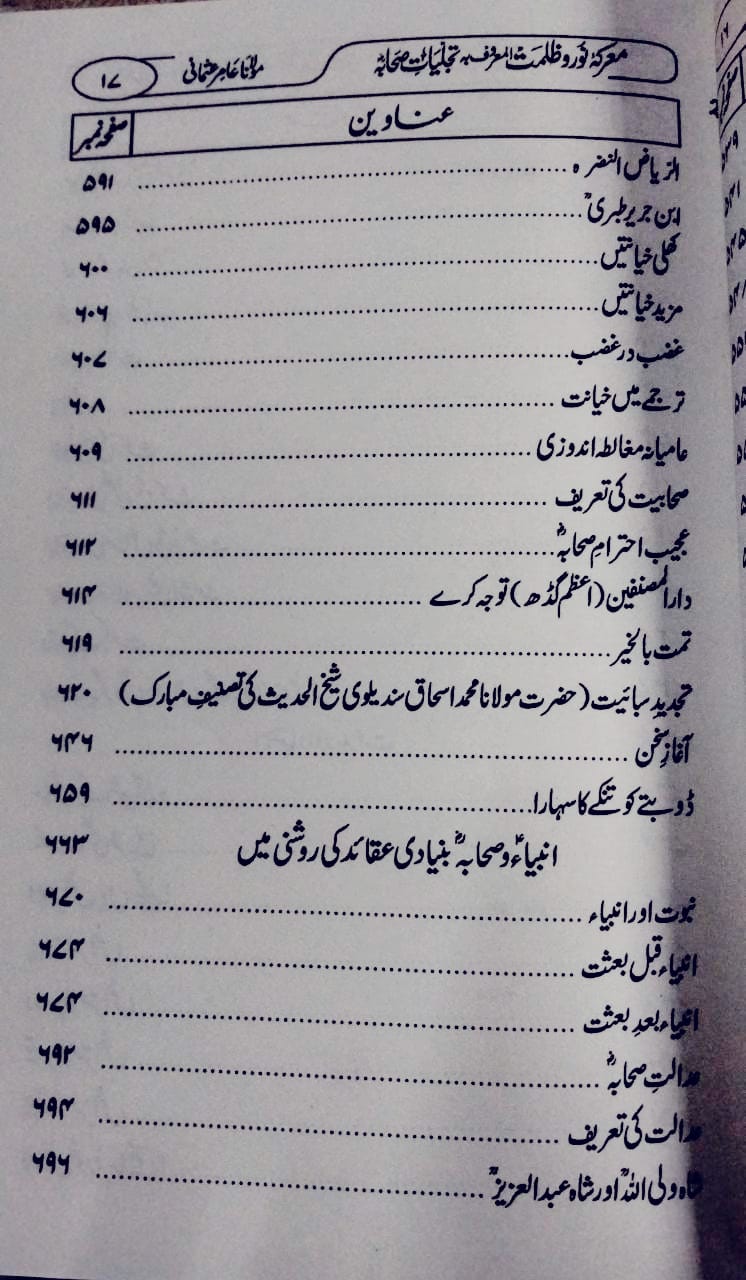 معرکۂ نور و ظلمت المعروف بہ تجلیاتِ صحابہؓ مولانا عامر عثمانی ۱۷
عناوین صفحہ نمبر
الریاض النضرہ ۵۹۱
ابن جریر طبریؒ ۵۹۵
کھلی خیانتیں ۶۰۰
مزید خیانتیں ۶۰۶
غضب در غضب ۶۰۷
ترجمے میں خیانت ۶۰۸
عامیانہ مغالطہ اندوزی ۶۰۹
صحابیت کی تعریف ۶۱۱
عجیب احترامِ صحابہؓ ۶۱۲
دارالمصنفین (اعظم گڈھ) توجہ کرے ۶۱۴
تمت بالخیر ۶۱۹
تجدیدِ سبائیت (حضرت مولانا محمد اسحاق سندیلوی شیخ الحدیث کی تصنیف مبارک) ۶۲۰
آغازِ سخن ۶۴۶
ڈوبتے کو تنکے کا سہارا ۶۵۹
انبیاءؑ و صحابہؓ بنیادی عقائد کی روشنی میں ۶۶۳
نبوت اور انبیاء ۶۷۰
انبیاء قبل بعثت ۶۷۴
انبیاء بعدِ بعثت ۶۷۴
عدالتِ صحابہؓ ۶۹۲
عدالت کی تعریف ۶۹۴
شاہ ولی اللہؒ اور شاہ عبدالعزیزؒ ۶۹۶